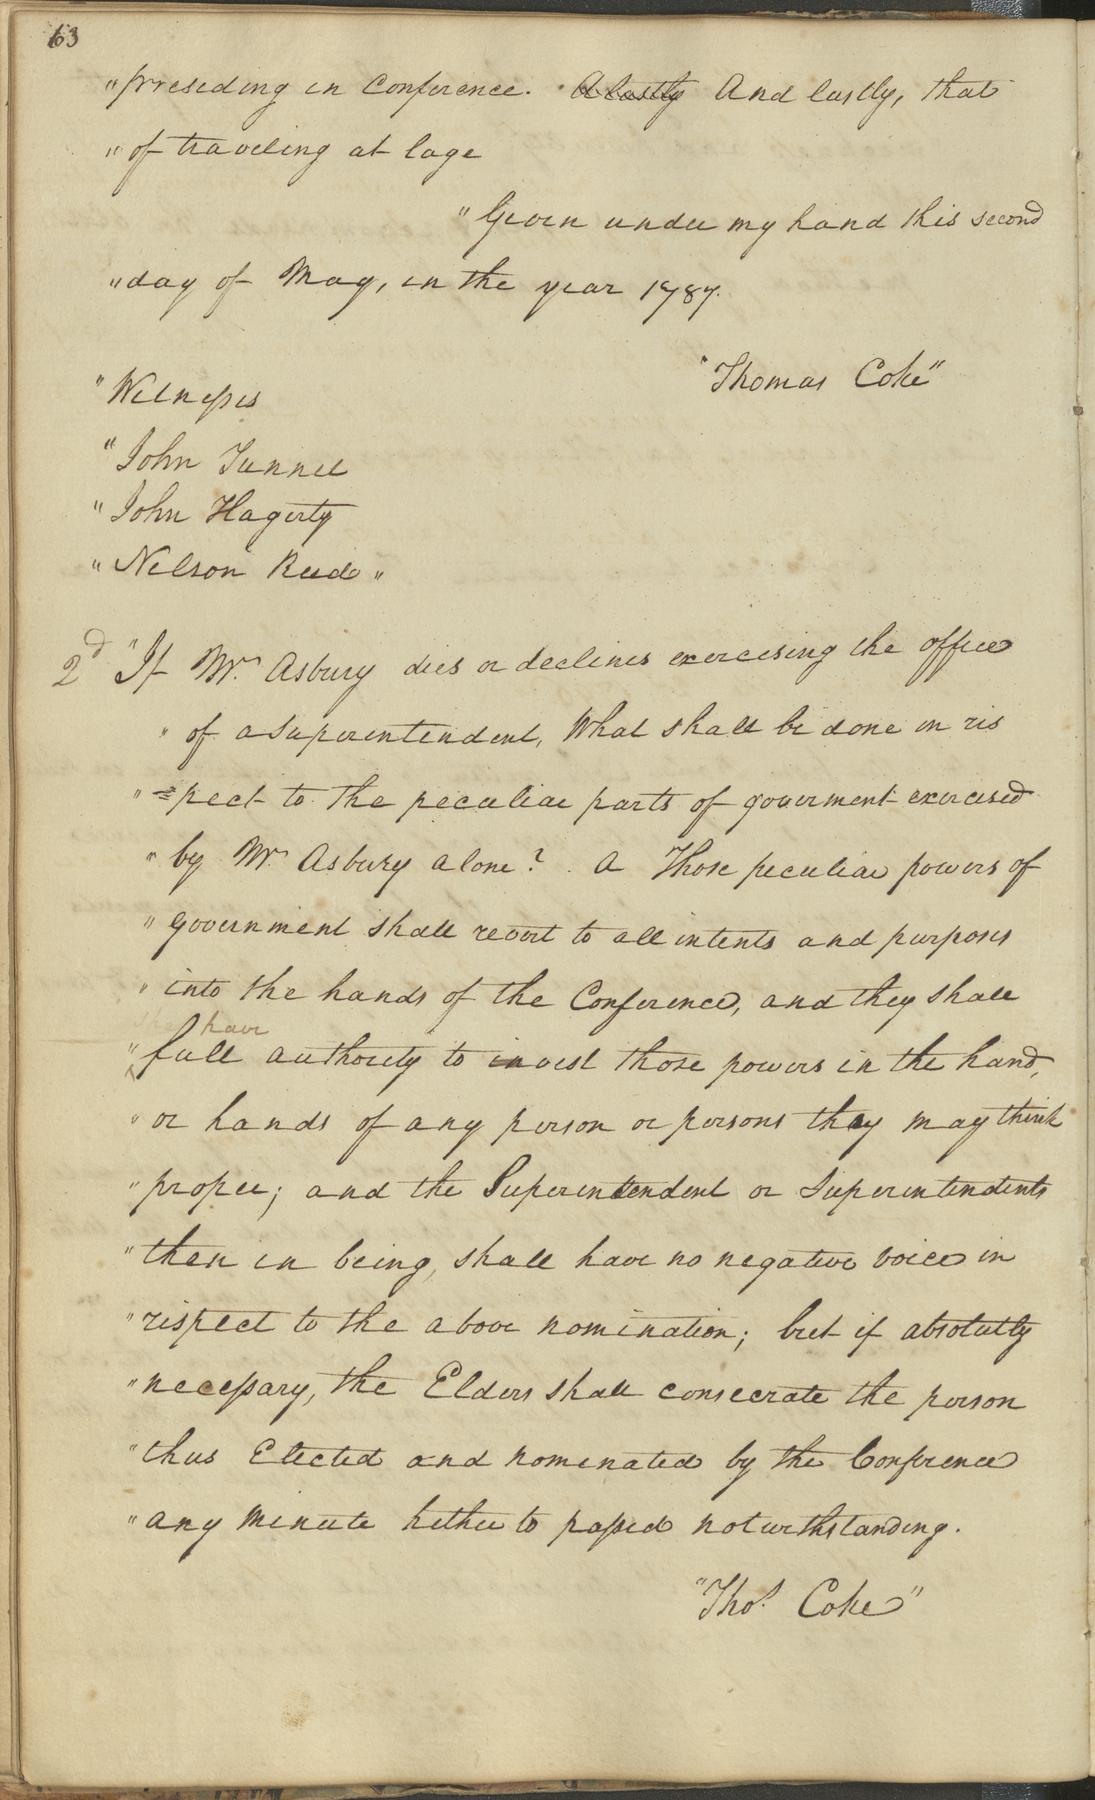 63
"presiding in Conference. A lastly And lastly, that
"of traveling at lage
"Given under my hand this second
"day of May, in the year 1787.
"Thomas Coke"
"Witnesses
"John Tunnel
"John Hagerty
"Nelson Reed"
2d "If Mr. Asbury dies or declines exercising the office
" of a Superintendent, What shall be done in res
" =pect to the peculiar parts of goverment exercised
" by Mr. Asbury alone? A Those peculiar powers of
" government shall revert to all intents and purposes
" into the hands of the Conference, and they shall
have
" full authority to invest those powers in the hand,
" or hands of any person or persons they may think
" proper; and the Superintendent or Superintendents
" then in being, shall have no negative voice in
" respect to the above nomination; but if absolutly
" necessary, the Elders shall consecrate the person
" thus Elected and nominated by the Conference
" any minute hitherto passed noturthstanding.
"Thos. Coke"